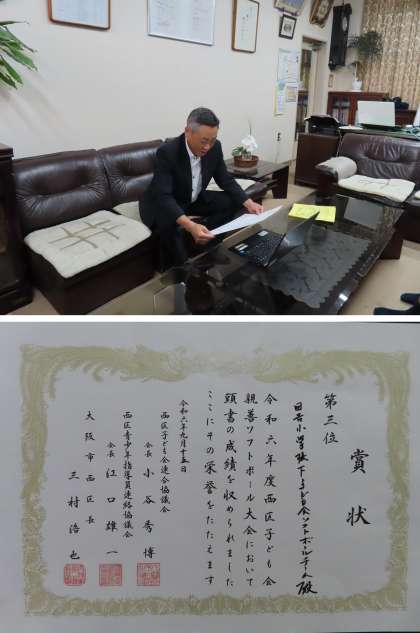 賞状
第三位
日吉小学校下子ども会ソフトボールチーム殿
令和六年度西区子ども会
親善ソフトボール大会において
頭書の成績を収められました
ここにその栄誉をたたえます
令和六年九月十五日
西区子ども会連合協議会
会長 小谷秀博
西区青少年指導員連絡協議会
会長 江口雄一
大阪市西区長
三村浩也